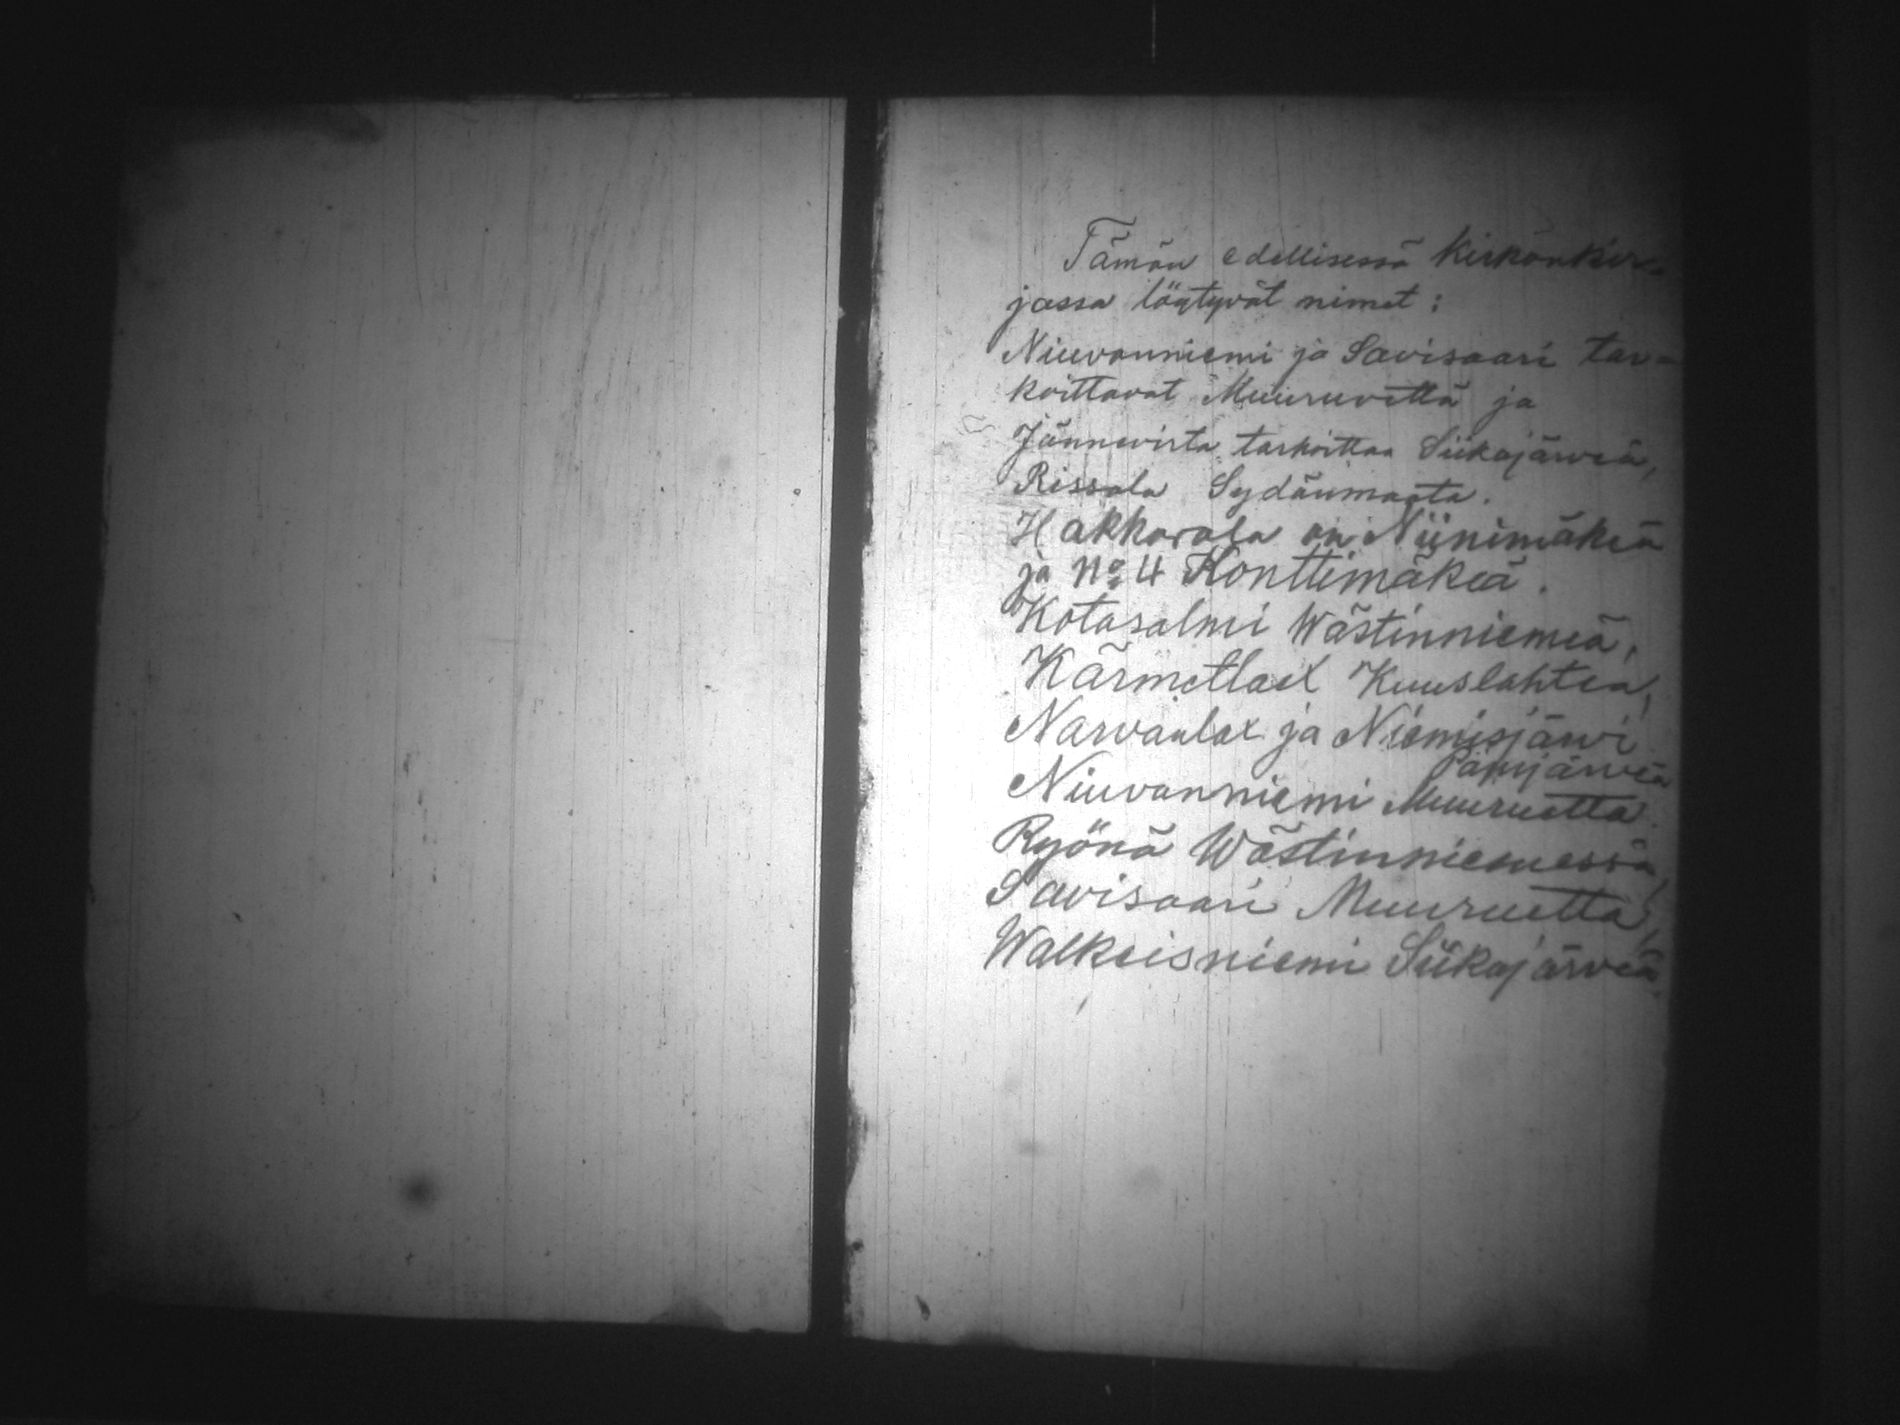 Tämän edellisessä kirkonkir-
jassa löytyvät nimet:
Niuvanniemi ja Savisaari tar=
koittavat Muuruvettä ja
Jännevirta tarkoittaa Siikajärveä,
Rissala Sydänmaata.
Hakkarala on Niinimäkeä
ja No 4 Konttimäkeä.
Kotasalmi Wästinniemeä,
Kärmetlax Kuuslahtea,
Narvanlax ja Niemisjärvi
Pajujärveä
Niuvanniemi Muuruettä.
Ryönä Wästinniemessä,
Savisaari Muuruettä,
Walkeisniemi Siikajärveä.